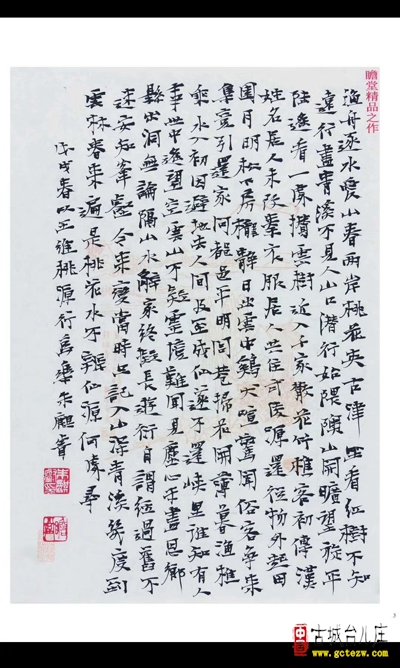 瞻堂精品之作
漁舟逐水爱山春兩岸桃花夾古津坐看红樹不知
遠行盡青溪不見人山口潜行始隈隩山開曠望旋平
陸遥看一處攢雲樹近入千家散花竹樵客初傳漢
姓名居人未改秦衣服居人共住武陵源還從物外起田
園月明松下房櫳静日出雲中鷄犬喧驚聞俗客争来
集竞引還家问都邑平明闾巷掃花開薄暮漁樵
乘水入初因避地去人间及至成仙遂不還峡里誰知有人
事世中遥望空雲山不疑靈境難聞見塵心未盡思鄉
縣出洞無論隔山水辭家終擬長遊衍自謂經過舊不
迷安知峯壑今来變當時只記入山深青溪幾度到
雲林春来遍是桃花水不辨仙源何處尋
戊戌春以王維桃源行
古城台儿庄
www.gctezw.com